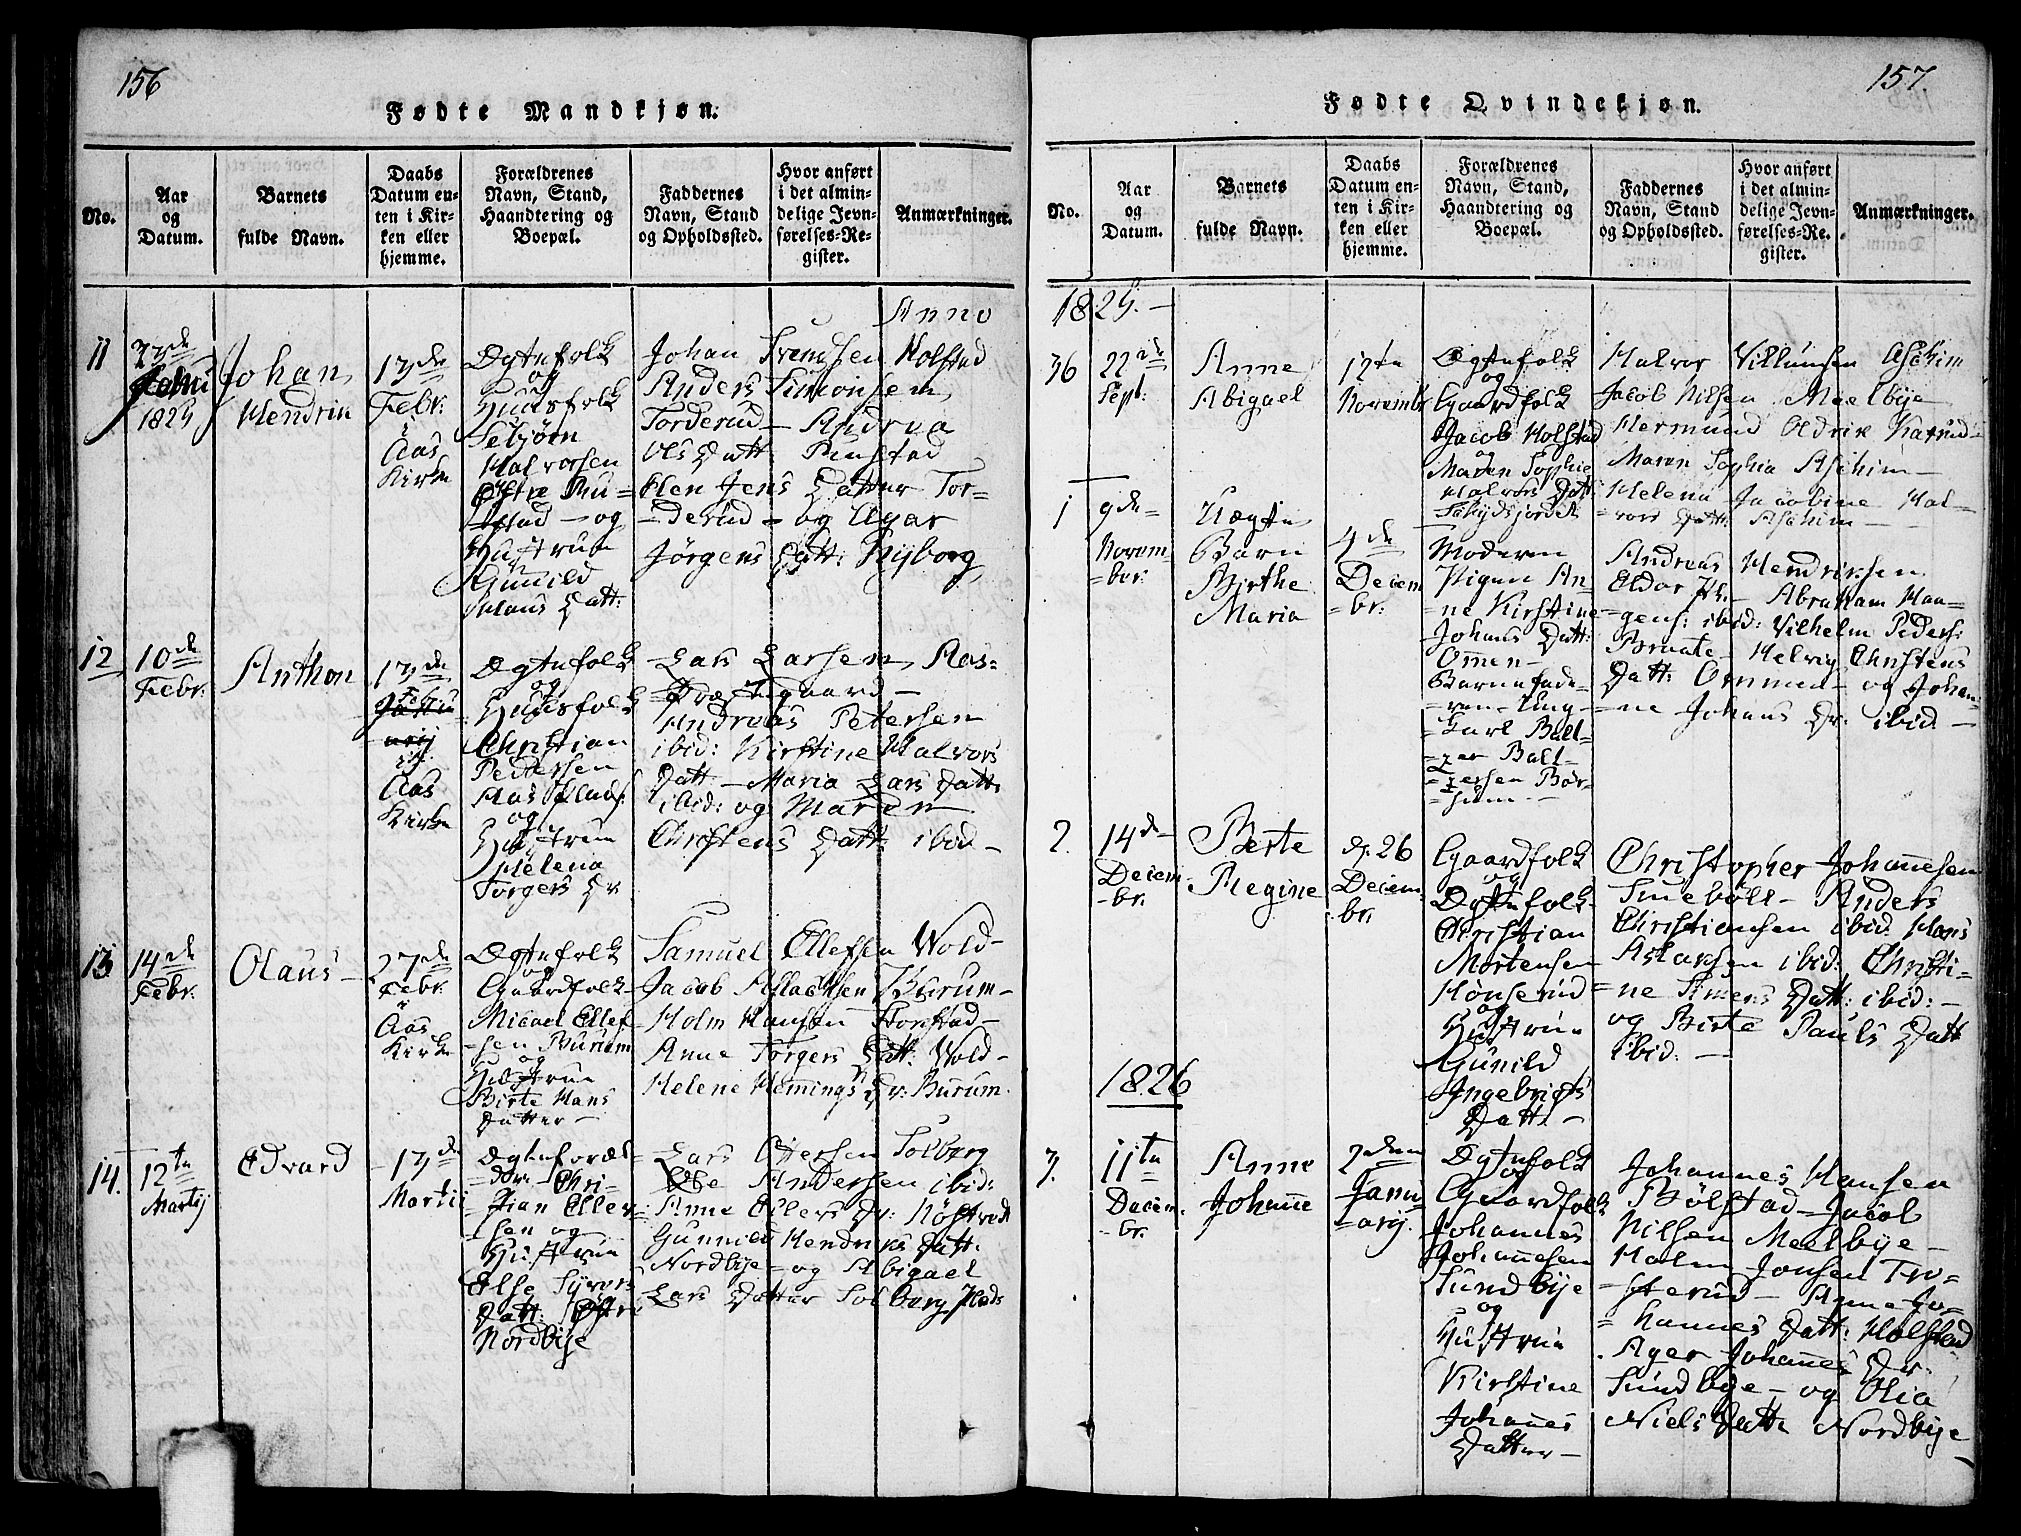 156
Fødte Mandkjøn.
No.
Aar
og
Datum.
Barnets
fulde Navn.
Daabs
Datum en-
ten i Kir-
ken eller
hjemme.
Forældrenes
Navn, Stand,
Haandtering og
Boepæl.
Faddernes
Navn, Stand
og Opholdssted.
Hvor anført
i det almin-
delige Jevn-
førelses-Re-
gister.
Anmærkninger.
Anno
11
1825
Johan
Hendrik
13de
Febr:
i
Aas
Kirke
Ægtefolk
og
Huusfolk
Halvorsen
og
Hustrue
Gunild
Datt:
Johan Svendsen Holstad
Anders Simonsen
Torderud – Andrea
Ols Datt:
Ellen Jens Datter Tor=
=derud – og Agar
Jørgens Datt: Nyborg
12
10de
Febr:
Anthon
13de
Febru
i
Aas
Kirke
Ægtefolk
og
Huusfolk
Christian
Pedersen
og
Hustrue
Helena
Torgers Dr
Lars Larsen Aas=
=Præstgaard –
Andreas Petersen
ibid: Kirstine Halvors
Datt – Maria Lars Datt:
ibid: og Maren
Christens Datt: ibid –
13
14de
Febr:
Olaus –
27de
Febr:
i
Aas
Kirke
Ægtefolk
og
Gaardfolk
Micael Ellef=
=sen Burum
og
Hustrue
Birte Hans
Datter –
Samuel Ellefsen Wold –
Jacob Burum –
Holm Hansen
Anne Torgers Datt: Wold –
Helene Hemings Dr: Burum.
14.
12te
Martij
Edvard
13de
Martii
Ægteforæl
=dre: Chri=
=stian Eller=
=sen og
Hustrue
Else Syvers
Datt: Østre
Nordbye
Lars Solberg
Ole Andersen ibid:
Anne Ellers Dr:
Gunnild Hendriks Datt:
Nordbye – og Abigael
Lars Datter Solberg Plads
157.
Fødte Qvindekjøn.
No.
Aar
og
Datum.
Barnets
fulde Navn.
Daabs
Datum en-
ten i Kir-
ken eller
hjemme.
Forældrenes
Navn, Stand,
Haandtering og
Boepæl.
Faddernes
Navn, Stand
og Opholdssted.
Hvor anført
i det almin-
delige Jevn-
førelses-Re-
gister.
Anmærkninger.
1825. –
36
22de
Sept:
Anne
Abigael
12te
Novembr
Ægtefolk
og
Gaardfolk
Jacob Holstad
og
Maren Sophie
Halvors Datt:
Halvor Aschim
Jacob Nilsen Meelbye
Hermund
Maren Sophia Aschim –
Helena Jacobine Hal=
=vors Datt: Aschim –
1
9de
Novem=
=ber:
Uægte
Barn
Birthe
Maria
4de
Decem
=br:
Moderen
Pigen An=
=ne Kirstine
Johans Datt:
Ommen –
Barnefade=
=ren – Ung=
=karl Balt=
=zer Balt=
=zersen Bør=
=sum. –
Andreas Hendriksen
Abraham Haa=
=gens: ibid: Vilhelm Peders:
Helvig Christens
Datt: Ommen – og Johan=
=ne Johans Dr: ibid. –
2.
14de
Decem=
=br.
Berte
Regine
d. 26
Decem
br.
Gaardfolk
og
Ægtefolk
Christian
Mortensen
Hønserud
og
Hustrue
Gunild
Ingebrigts
Datt –
Christopher Johannesen
Smebøll – Anders
Christiansen ibid. Hans
Aslaksen ibid: Christi=
=ne Simens Datt: ibid: –
og Birte Pauls Datt
ibid: –
1826
3.
11te
Decem=
br.
Anne
Johanne
2den
Janu
=arij.
Ægtefolk
og
Gaardfolk
Johannes
Johannesen
Sundbye
og
Hustrue
Kirstine
Johannes
Datter –
Johannes Hansen
Bølstad – Jacob
Nilsen Meelbye –
Holm Jonsen Tro=
=sterud – Anne Jo=
=hannes Datt: Holstad
Ager Johannes Dr.
Sundbye – og Olia
Niels Datt. Nordbye